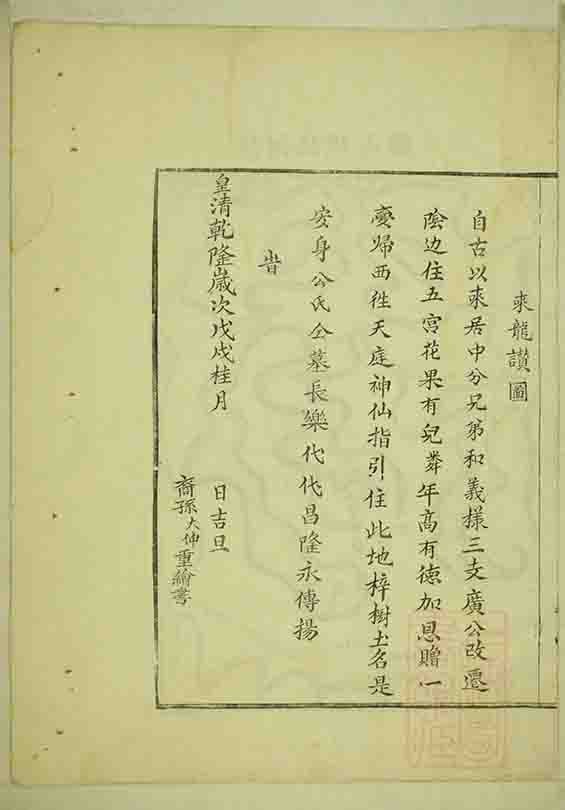 來龍讃圖
自古以來居中分兄弟和義樣三支廣公改遷
陰边住五宮花果有兒孫年高有德加恩贈一
夢歸西徃天庭神仙指引住此地梓樹土名是
安身公氏仝墓長樂代代昌隆永傳揚
旹
皇清乾隆嵗次戊戌桂月
日吉旦
裔孫大伸重繪書